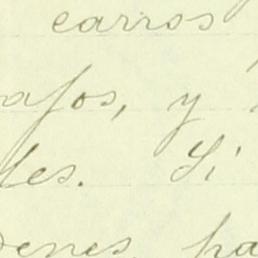 carros
afos, y
les. Si
denes, pa